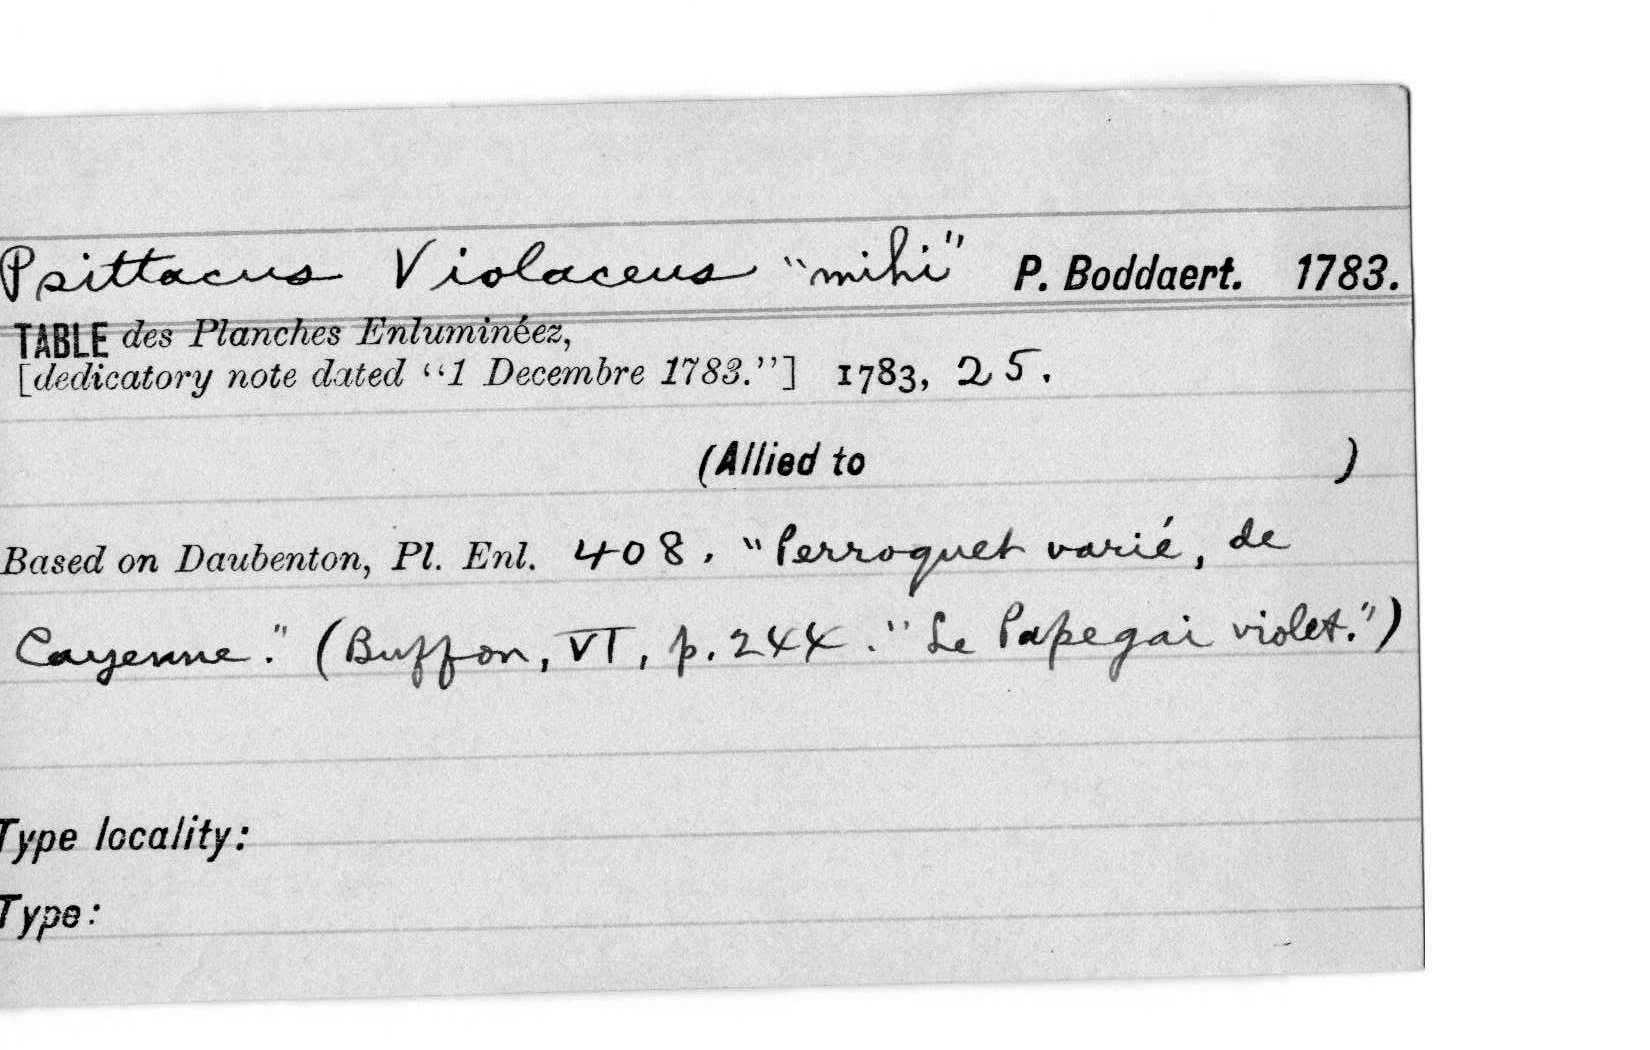 Psittacus Violaceus "mihi" P. Boddaert. 1783.
TABLE des Planches Enluminéez,
[dedicatory note dated "1 Decembre 1783."] 1783, 25.
(Allied to )
Based on Daubenton, Pl. Enl. 408. "Perroquet varié, de
Cayenne." (Buffon, VI, p. 244. "Le Papegai violet.")
Type locality:
Type: